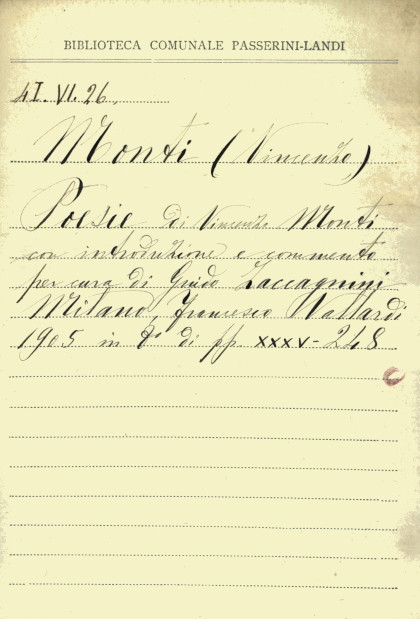 BIBLIOTECA COMUNALE PASSERINI-LANDI
4I.VI.26.
Monti (Vincenzo)
Poesie di Vincenzo Monti
con introduzione e commento
per cura di Guido Zaccagnini
Milano, Francesco Vallardi
1905 in 8° di pp. XXXV-248